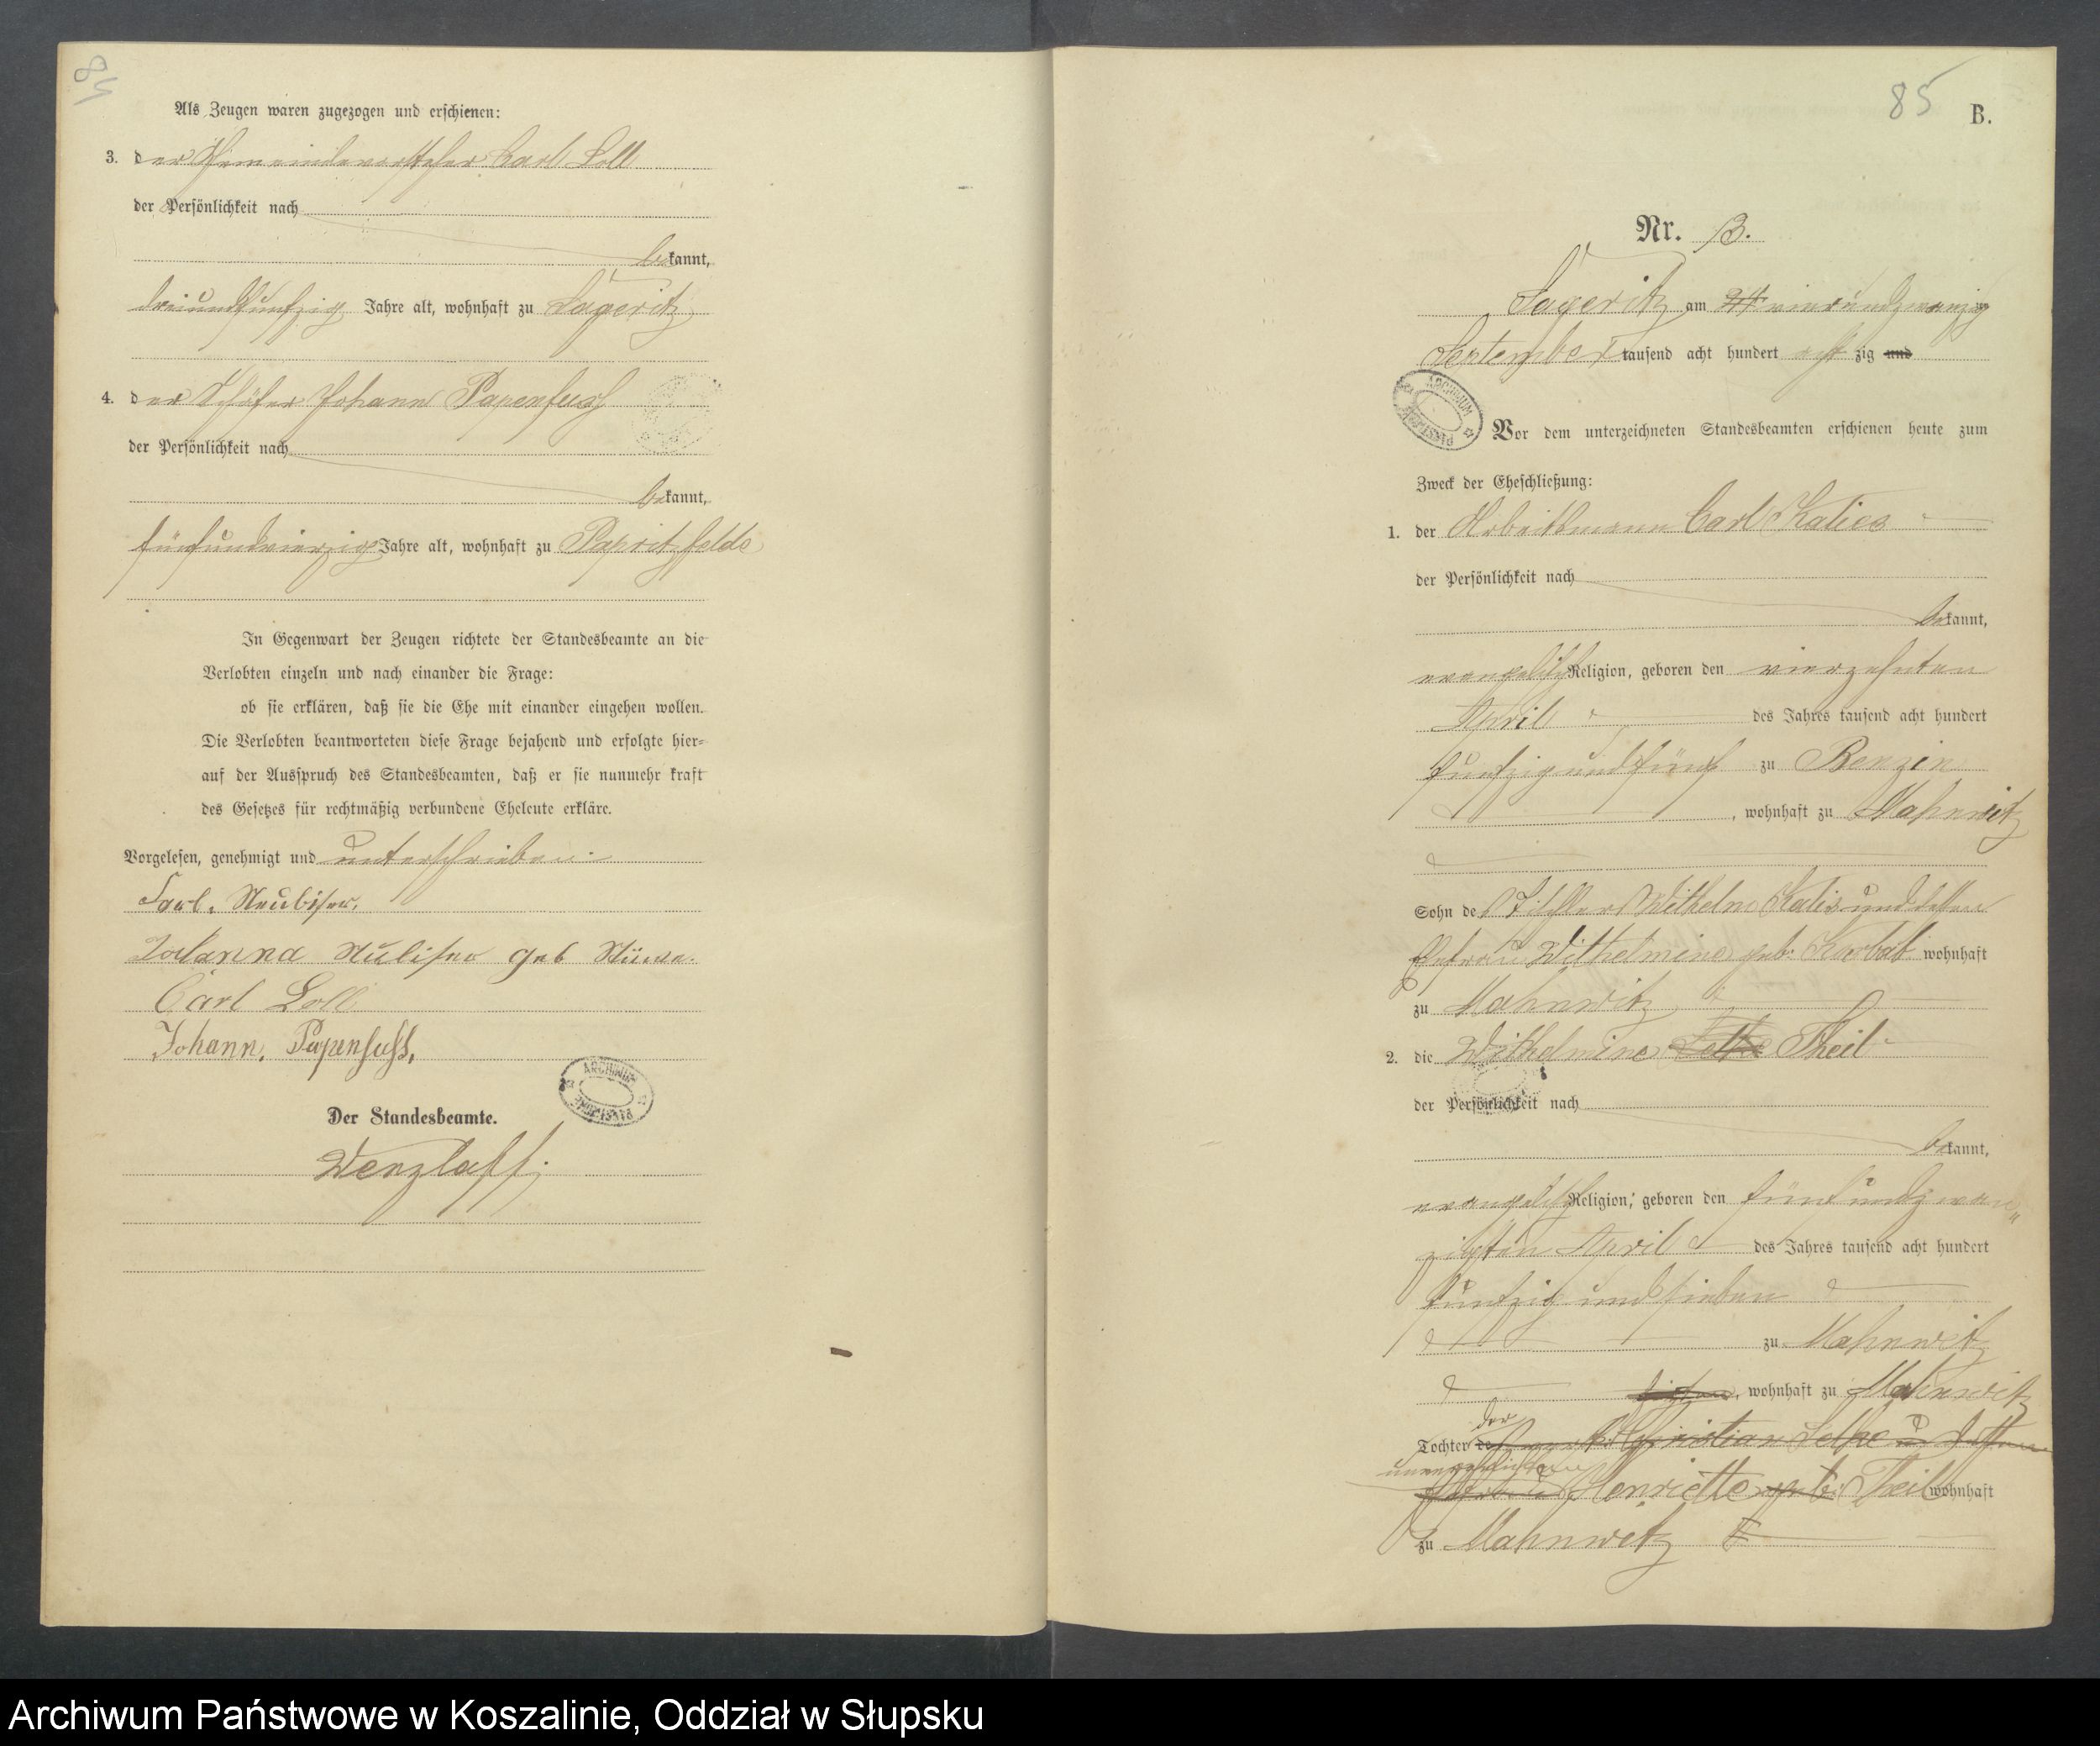 84
Als Zeugen waren zugezogen und erschienen:
3. der Gemeindevorsteher Carl Loll
der Persönlichkeit nach
bekannt,
dreiundfünfzig Jahre alt, wohnhaft zu Sageritz
4. der Schäfer Johann Papenfuß
der Persönlichkeit nach
bekannt,
fünfundvierzig Jahre alt, wohnhaft zu Papritzfelde
In Gegenwart der Zeugen richtete der Standesbeamte an die
Verlobten einzeln und nach einander die Frage:
ob sie erklären, daß sie die Ehe mit einander eingehen wollen.
Die Verlobten beantworteten diese Frage bejahend und erfolgte hier-
auf der Ausspruch des Standesbeamten, daß er sie nunmehr kraft
des Gesetzes für rechtmäßig verbundene Eheleute erkläre.
Vorgelesen, genehmigt und unterschrieben
Carl Loll
Johann. Papenfuß.
Der Standesbeamte.
Wenzlaff.
85
B.
Nr. 13.
Sageritz am 24 vierundzwanzig
September tausend acht hundert acht zig und
ARCHIWUM PAŃSTWOWE
Vor dem unterzeichneten Standesbeamten erschienen heute zum
Zweck der Eheschließung:
1. der Arbeitsmann Carl Katies
der Persönlichkeit nach
bekannt,
evangelisch Religion, geboren den vierzehnten
April des Jahres tausend acht hundert
fünfzig und fünf zu Benzin
, wohnhaft zu Mahnwitz
Sohn des Tischler Wilhelm Katis und dessen
Ehefrau Wilhelmine geb. Korbat wohnhaft
zu Mahnwitz
2. die Wilhelmine Selke Theil
der Persönlichkeit nach
bekannt,
evangelisch Religion, geboren den fünfundzwan
zigsten April des Jahres tausend acht hundert
fünfzig und sieben
zu Mahnwitz
, wohnhaft zu Mahnwitz
der
Tochter de Christian Selke u dessen
unverehelichten
Ehefrau Henriette geb. Theil wohnhaft
zu Mahnwitz
Archiwum Państwowe w Koszalinie, Oddział w Słupsku